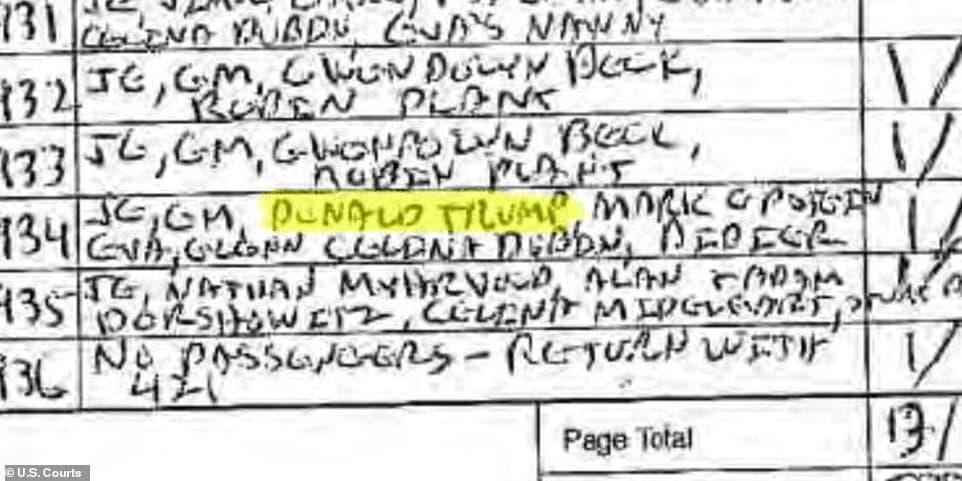 931 CELINA DUBIN, EVA'S NANNY
932 JE, GM, GWENDOLYN BECK, 1/
ROBIN PLANT
933 JE, GM, GWENDOLYN BECK, 1/
ROBIN PLANT
934 JE, GM, DONALD TRUMP MARK EPSTEIN 1/
EVA, GLENN CELINA DUBIN, DIDIER
935 JE, NATHAN MYHRVOLD, ALAN + ADAM 1/
DERSHOWITZ, CELINA MIDELFART,
936 NO PASSENGERS - RETURN WITH 1/
421
Page Total 13/
© U.S. Courts